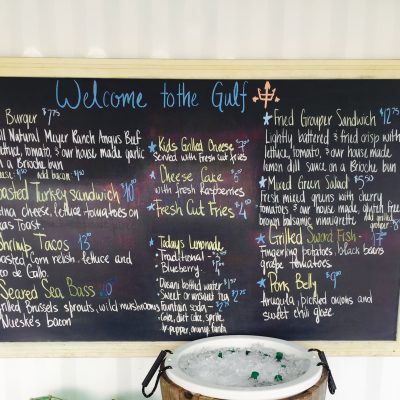 Welcome to the Gulf
Burger $7.75
Natural Meyer Ranch Angus Beef
lettuce, tomato, & our house made garlic
on a Brioche bun
add bacon
Turkey sandwich
cheese, lettuce tomatoes on
Toast.
Shrimp Tacos 13
corn relish, lettuce and
de Gallo.
Seared Sea Bass
Brussels sprouts, wild mushrooms
Nueske's bacon
Kids Grilled Cheese
Served with Fresh Cut Fries
Cheese Cake
with fresh Raspberries
Fresh Cut Fries $4
Todays Lemonade
Traditional -
Blueberry
Dasani bottled water
Sweet or unsweet tea
Fountain soda -
Coke, diet coke, sprite,
dr. pepper, orange fanta
Fried Grouper Sandwich $12.75
Lightly battered & fried crisp with
lettuce, tomato, & our house made
lemon dill sauce on a Brioche bun
Mixed Green Salad $5.50
fresh mixed greens with cherry
tomatoes & our house made, gluten free
brown balsamic vinaigrette.
add grilled
grouper
Grilled Sword Fish - 17
Fingerling potatoes, black beans
grape tomatoes.
Pork Belly
Arugula, pickled onions and
sweet chili glaze